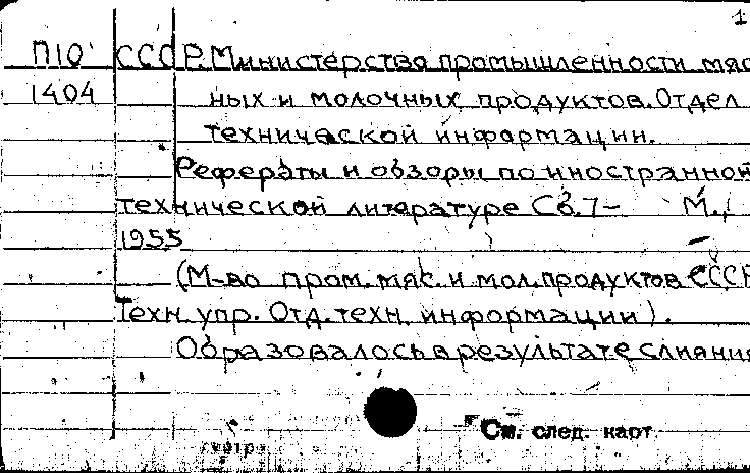 1
П10 СССР. Министерство промышленности мяс
1404 ных и молочных продуктов. Отдел
технической информации.
Рефераты и обзоры по иностранной
технической литературе Сб. 1- М.,
1955
(М-во пром. мяс. и мол. продуктов СССР
Техн. упр. Отд. техн. информации).
Образовалось в результате слияния
См. след. карт.